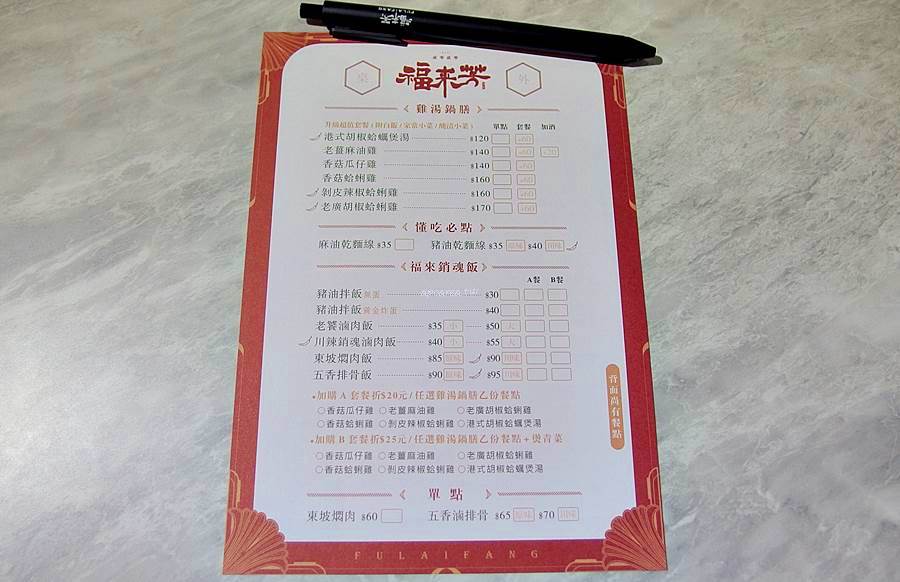 福來芳
FULAIFANG
桌 福來芳 外
雞湯鍋膳
升級超值套餐(附白飯/家常小菜/醃漬小菜) 單點 套餐 加酒
港式胡椒蛤蠣煲湯 $120 +60
老薑麻油雞 $140 +60 +20
香菇瓜仔雞 $140 +60
香菇蛤蜊雞 $160 +60
剝皮辣椒蛤蜊雞 $160 +60
老廣胡椒蛤蜊雞 $170 +60
懂吃必點
麻油乾麵線 $35 豬油乾麵線 $35 原味 $40 川味
福來銷魂飯
A餐 B餐
豬油拌飯 無蛋 $30
豬油拌飯 黃金炸蛋 $40
老饕滷肉飯 $35 小 $50 大
川辣銷魂滷肉飯 $40 小 $55 大
東坡燜肉飯 $85 原味 $90 川味
五香排骨飯 $90 原味 $95 川味
•加購 A 套餐折$20元/任選雞湯鍋膳乙份餐點
○香菇瓜仔雞 ○老薑麻油雞 ○老廣胡椒蛤蜊雞
○香菇蛤蜊雞 ○剝皮辣椒蛤蜊雞 ○港式胡椒蛤蠣煲湯
•加購 B 套餐折$25元/任選雞湯鍋膳乙份餐點+燙青菜
○香菇瓜仔雞 ○老薑麻油雞 ○老廣胡椒蛤蜊雞
○香菇蛤蜊雞 ○剝皮辣椒蛤蜊雞 ○港式胡椒蛤蠣煲湯
背面尚有餐點
單點
東坡燜肉 $60 五香滷排骨 $65 原味 $70 川味
FULAIFANG